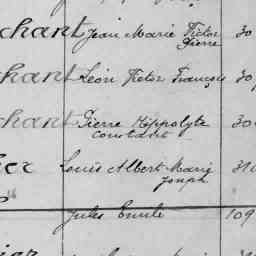 chant Jean Marie Victor 30
Pierre
chant Léon Victor François 30
chant Pierre Hippolyte 30
Constant
ier Louis Albert Marie 310
Joseph
Jules Emile 109